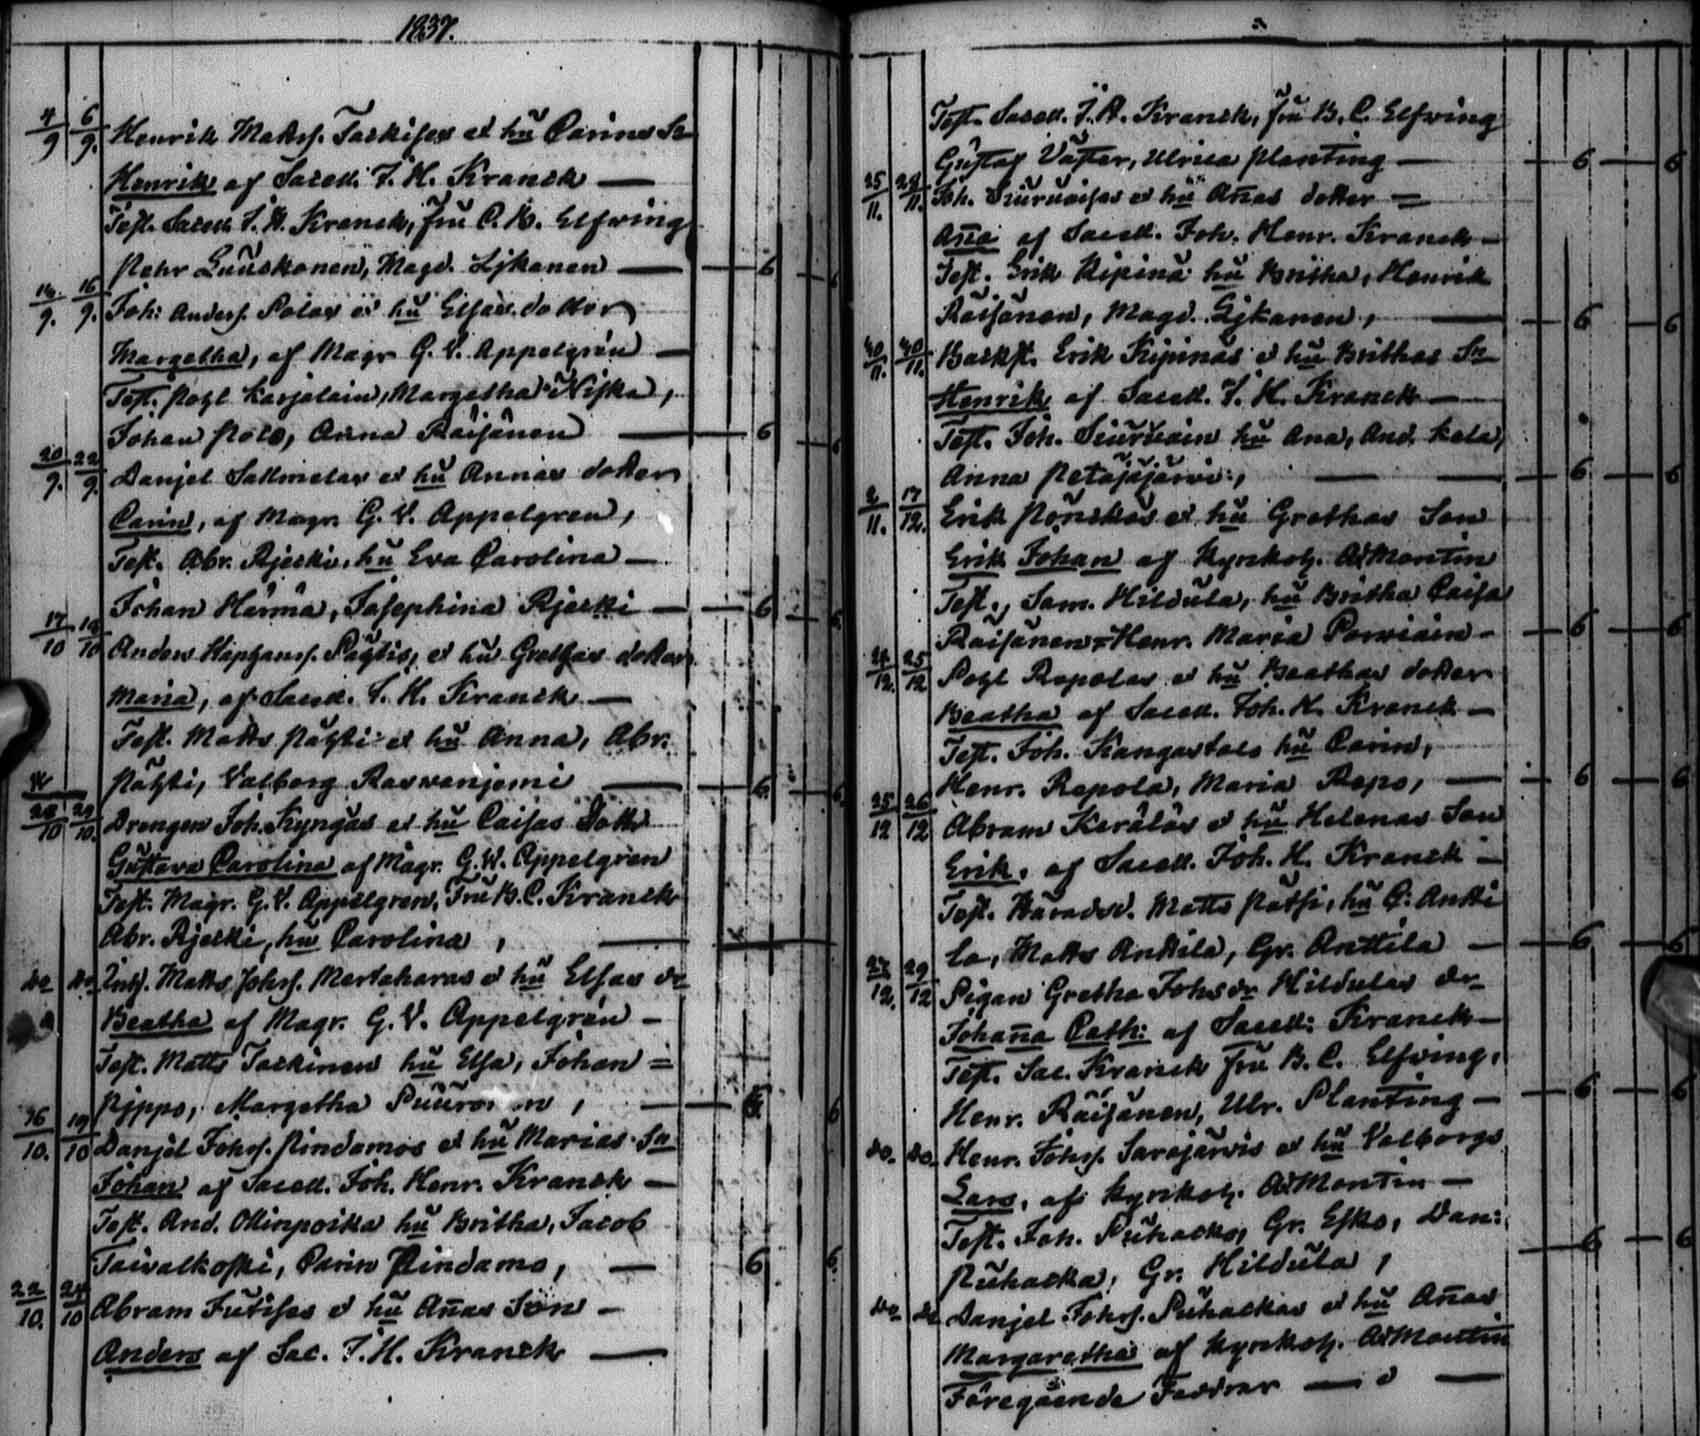 1837.
4/9 6/9. Henrik Mattsf. Taskises et hu Carins Sn
Henrik af Sacell. J. H. Kranck —
Test. Sacell. J. H. Kranck, fru C. B. Elfving
Pehr Luuskonen, Magd. Lykanen — 6
14/9. 16/9. Joh: Andersf. Polas et hu Elsas dotter
Margetha, af Magr G. V. Appelgrén —
Test. Pahl Karjalain, Margetha Niska,
Johan Polo, Anna Räisänen — 6
20/9. 22/9. Danjel Sallmelas et hu Annas dotter
Carin, af Magr. G. V. Appelgren,
Test. Abr. Ajeski, hu Eva Carolina —
Johan Härmä, Josephina Ajeski — 6
17/10 19/10 Anders Påhtis, et hu Grethas dotter
Maria, af Sacell. J. H. Kranck —
Test. Matts Påhti et hu Anna, Abr.
Påhti, Valborg Rasvanjemi — 6
28/10 29/10. Drengen Joh. Kyngäs et hu Caisas Dottr
Gustava Carolina af Magr. G. W. Appelgren
Test. Magr. G. V. Appelgren, Fru B. C. Kranck
Abr. Ajeski, hu Carolina, —
do do Inhs. Matts Johsf. Martakaras et hu Elsas dr
Beatha af Magr. G. V. Appelgrén —
Test. Matts Taskinen hu Elsa, Johan =
Pippo, Margetha Puuronen, — 6
16/10. 19/10 Danjel Johsf. Pindamos et hu Marias Sn
Johan af Sacell. Joh. Henr. Kranck —
Test. And. Ollinpoika hu Britha, Jacob
Taivalkoski, Carin Pindamo, — 6 6
22/10. 24/10 Abram Jutises et hu Añas Son —
Anders af Sac. J. H. Kranck —
Test. Sacell. J. H. Kranck, fru B. C. Elfving
Gustaf Väster, Ulrica Planting — 6 — 6
25/11. 28/11. Joh. Siuruaises et hu Añas dotter =
Aña af Sacell. Joh. Henr. Kranck —
Test. Erik Kipinä hu Britha, Henrik
Räisänen, Magd. Lykanen, — 6 — 6
30/11. 30/11. Backst. Erik Kipinäs et hu Brithas Sn
Henrik af Sacell. J. H. Kranck —
Test. Joh. Siuruain hu Ana, And. Kela,
Anna Petäjäjärvi, — 6 — 6
2/11. 17/12. Erik Pönskös et hu Grethas Son
Erik Johan af Kyrkoh. Ad Montin
Test., Sam. Hildula, hu Britha Caisa
Räisänen, Henr. Maria Parviain — 6 — 6
24/12. 25/12 Pahl Repolas et hu Beathas dotter
Beatha af Sacell. Joh. H. Kranck —
Test. Joh. Kangastalo hu Carin,
Henr. Repola, Maria Repo, — 6 — 6
25/12 26/12 Abram Keräläs et hu Helenas Son
Erik, af Sacell. Joh. H. Kranck —
Test. Häradsd. Matts Pätsi, hu C. Antti
la, Matts Anttila, Gr. Anttila — 6 — 6
27/12. 29/12 Pigan Gretha Johsdr Hildulas dr
Johaña Cath: af Sacell: Kranck —
Test. Sac. Kranck fru B. C. Elfving,
Henr. Räisänen, Ulr. Planting — 6 — 6
do. do. Henr. Johsf. Sarajärvis et hu Valborgs
Lars, af Kyrkoh. Ad Montin —
Test. Joh. Puhacka, Gr. Esko, Dan:
Puhacka, Gr. Hildula, — 6 — 6
do do Danjel Johsf. Puhackas et hu Añas
Margaretha af Kyrkoh. Ad Montin
Föregående Faddrar —